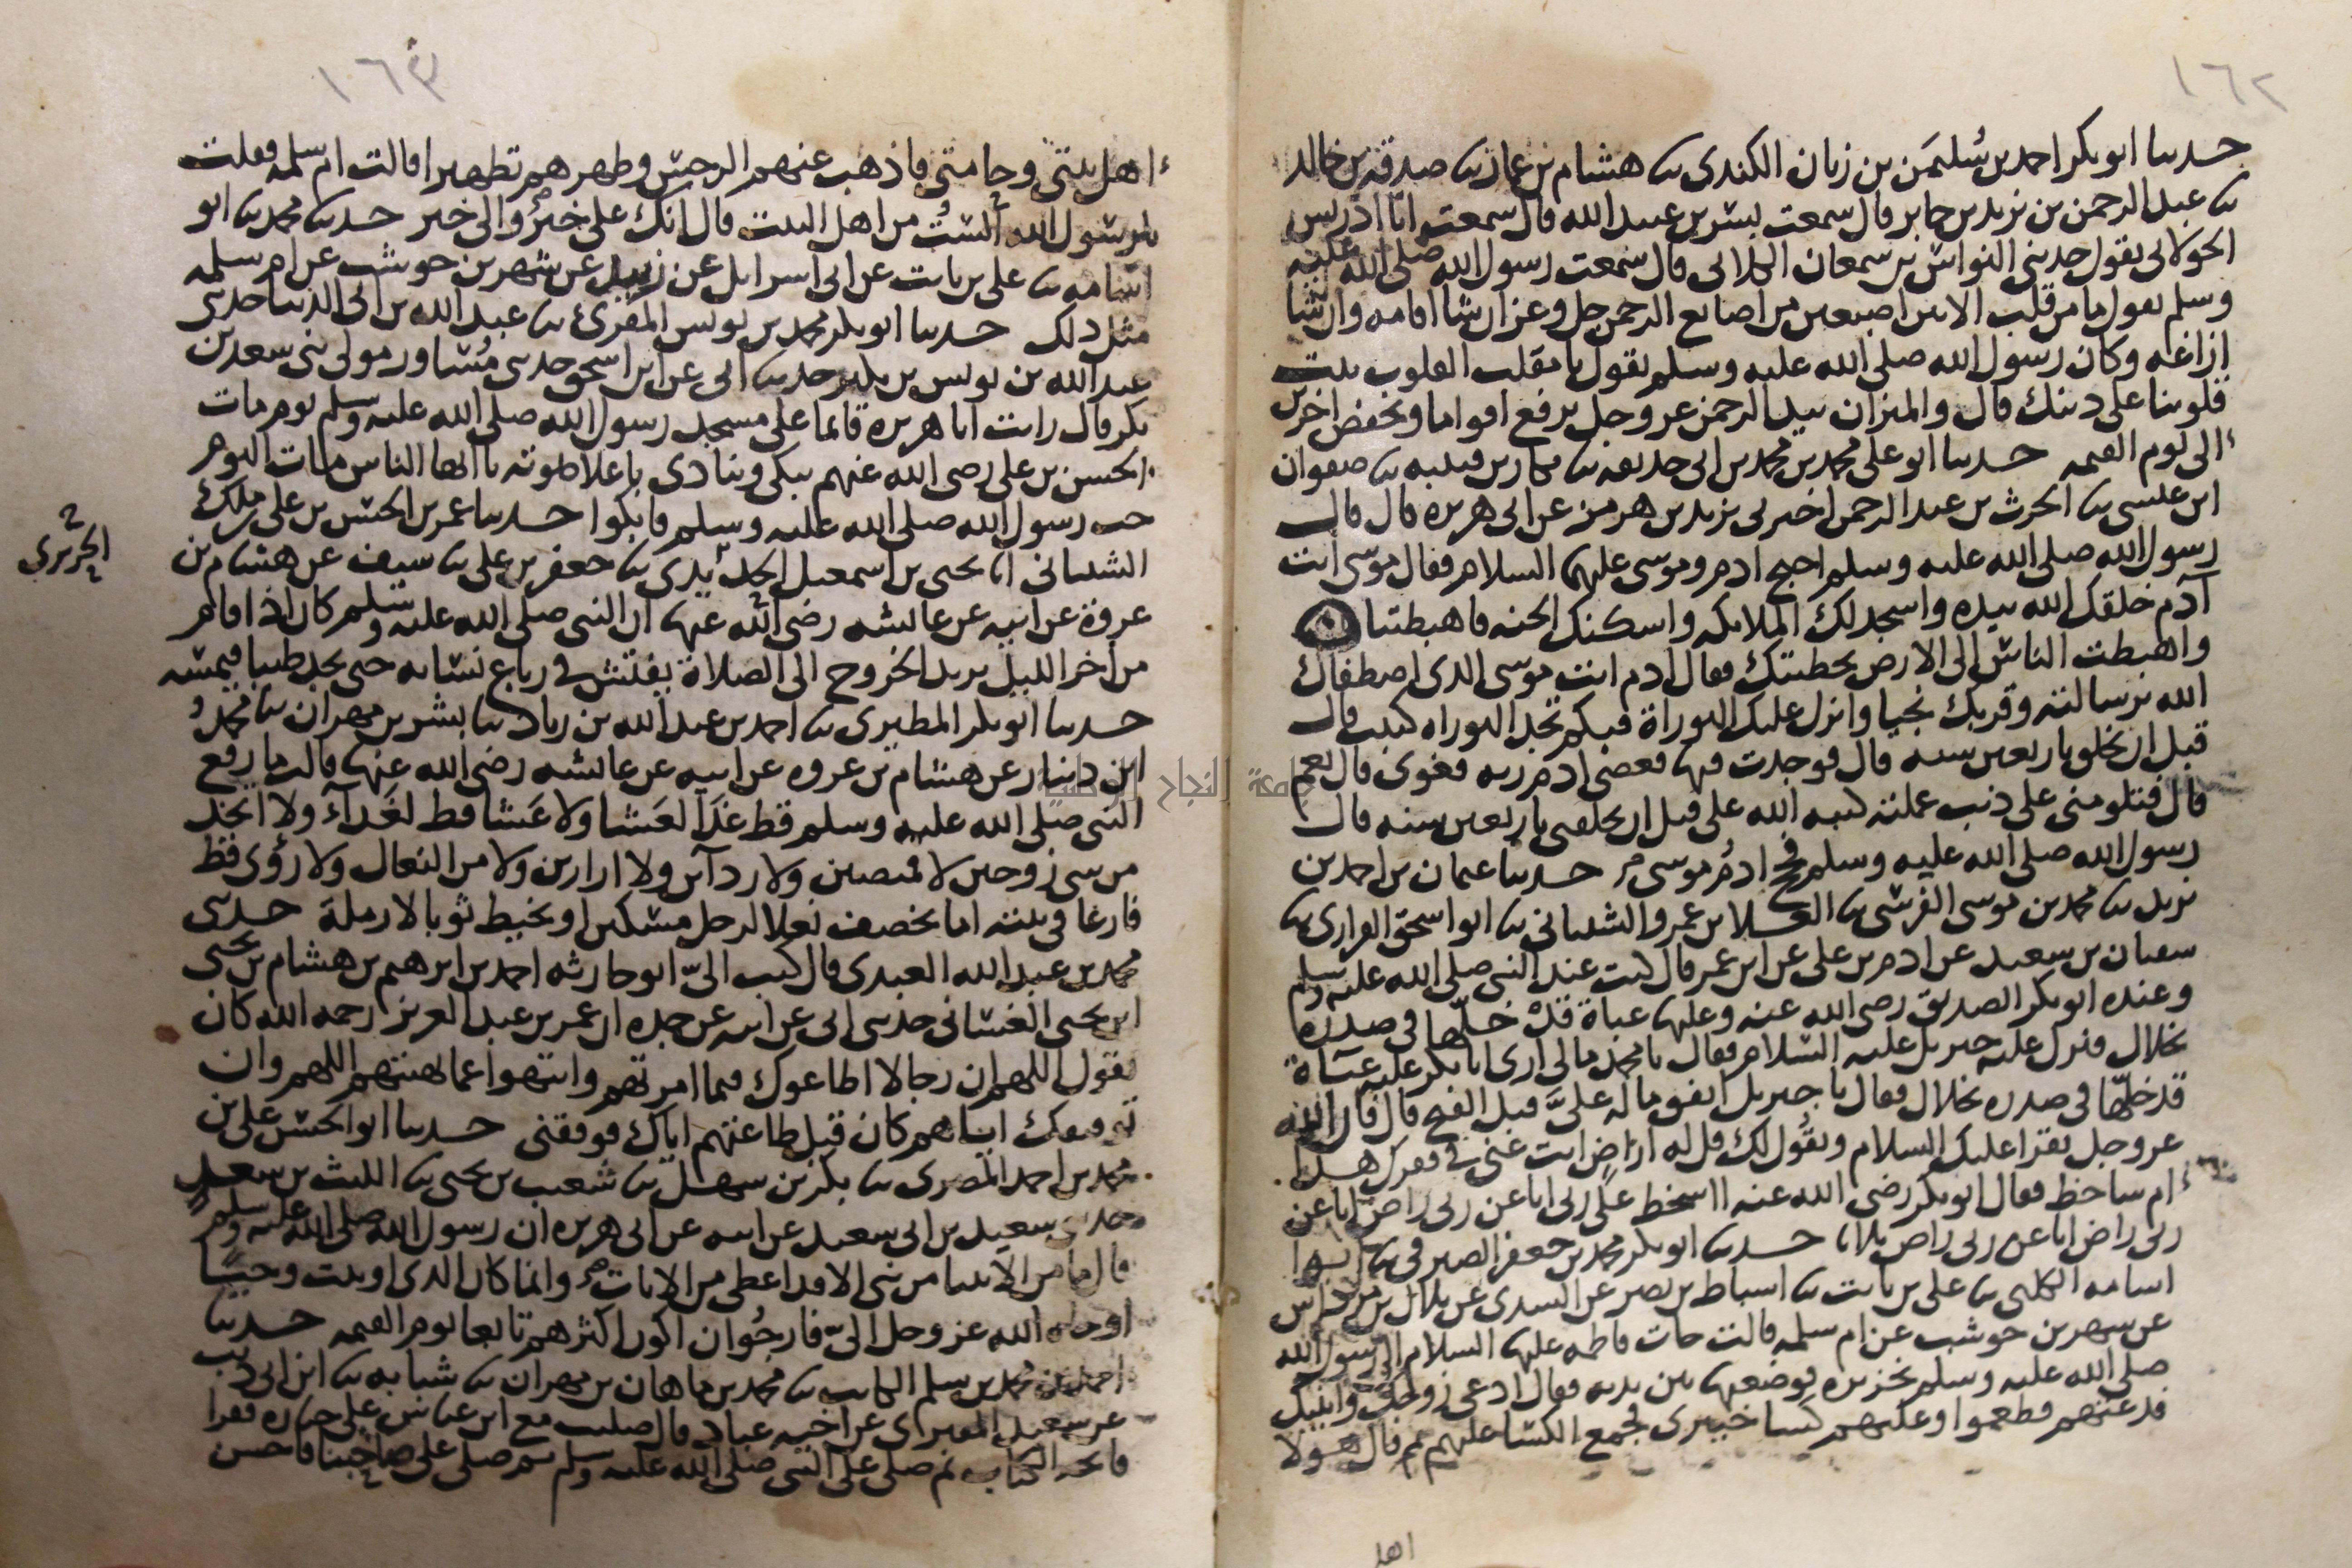 ١٦٢
حدثنا ابو بكر احمد بن سُليمَن بن زبان الكندى ثنا هشام بن عمار ثنا صدقة بن خالد
ثنا عبد الرحمن بن يزيد بن جابر قال سمعت بسر بن عبيد الله قال سمعت ابا ادريس
الخولانى يقول حدثنى النواس بن سمعان الكلابى قال سمعت رسول الله صلى الله عليه
وسلم يقول ما من قلب الا بين اصبعين من اصابع الرحمن جل وعز ان شا اقامه وان شا
ازاغه وكان رسول الله صلى الله عليه وسلم يقول يا مقلب القلوب ثبت
قلوبنا على دينك قال والميزان بيد الرحمن عز وجل يرفع اقواما ويخفض اخرين
الى يوم القيمه حدثنا ابو على محمد بن محمد بن ابى حذيفه ثنا بكار بن قتيبه ثنا صفوان
ابن عيسى ثنا الحرث بن عبد الرحمن اخبرنى يزيد بن هرمز عن ابى هريره قال قال
رسول الله صلى الله عليه وسلم احتج ادم وموسى عليهما السلام فقال موسى انت
آدم خلقك الله بيده واسجد لك الملائكه واسكنك الجنه فاهبطتنا
واهبطت الناس الى الارض بخطيتك فقال ادم انت موسى الذى اصطفاك
الله برسالته وقربك نجيا وانزل عليك التوراة فبكم تجد التوراه كتبت قال
قبل ان تخلق باربعين سنه قال فوجدت فيها فعصى ادم ربه فغوى قال نعم
قال فتلومنى على ذنب عملته كتبه الله على قبل ان يخلقنى باربعين سنه قال
رسول الله صلى الله عليه وسلم فحج ادمُ موسى حدثنا عثمان بن احمد بن
يزيد ثنا محمد بن موسى القرشى ثنا العلا بن عمرو الشيبانى ثنا ابو اسحق الفزارى ثنا
سفيان بن سعيد عن ادم بن على عن ابن عمر قال كنت عند النبى صلى الله عليه وسلم
وعنده ابو بكر الصديق رضى الله عنه وعليها عباة قد خلّها فى صدره
بخلال فنزل عليه جبريل عليه السلام فقال يا محمد مالى ارى ابا بكر عليه عباة
قد خلّها فى صدره بخلال فقال يا جبريل انفق ماله علىَّ قبل الفتح قال فان الله
عز وجل يقرا عليك السلام ويقُول لك قل له اراضٍ انت عنى فى فقرك هذا
ام ساخط فقال ابو بكر رضى الله عنه ااسخط على ربى انا عن ربى راض انا عن
ربى راض انا عن ربى راض ثلاثا حدثنا ابو بكر محمد بن جعفر الصيرفى ثنا ابو
اسامه الكلبى ثنا على بن ثابت ثنا اسباط بن نصر عن السدى عن بلال بن مرداس
عن شهر بن حوشب عن ام سلمه قالت جات فاطمه عليها السلام الى رسول الله
صلى الله عليه وسلم بخزيره فوضعتها بين يديه فقال ادعى زوجك وابنيك
فدعتهم فطعموا وعليهم كسا خيبرى فجمع الكسا عليهم ثم قال هولا
اهل
١٦٣
اهل بيتى وحامتى فاذهب عنهم الرجس وطهرهم تطهيرا قالت ام سلمه فقلت
يا رسول الله الستُ من اهل البيت قال انك على خيرُ والى خير حدثنا محمد ثنا ابو
اسامه ثنا على بن ثابت عن ابى اسرايل عن زبيد عن شهر بن حوشب عن ام سلمه
مثل ذلك حدثنا ابو بكر محمد بن يونس المقرئ ثنا عبد الله بن ابى الدنيا حدثنى
عبد الله بن يونس بن بكير حدثنا ابى عن ابن اسحق حدثنى مُساور مولى بنى سعد بن
بكر قال رايت ابا هريره قائما على مسجد رسول الله صلى الله عليه وسلم يوم مات
الحسن بن على رضى الله عنهم يبكى وينادى باعلا صوته يا ايها الناس مات اليوم
حب رسول الله صلى الله عليه وسلم فابكوا حدثنا عمر بن الحسن بن على بن ملك
الشيبانى انا يحيى بن اسمعيل ثنا جعفر بن على ثنا سيف عن هشام بن
الجريرى
عروة عن ابيه عن عائشه رضى الله عنها ان النبى صلى الله عليه وسلم كان اذا قام
من اخر الليل يريد الخروج الى الصلاة يفتش فى رباع نسائه حتى يجد طيبا فيمسه
حدثنا ابو بكر المطيرى ثنا احمد بن عبد الله بن زياد ثنا بشر بن مهران ثنا محمد
ابن دينار عن هشام بن عروه عن ابيه عن عائشه رضى الله عنها قالت ما رفع
النبى صلى الله عليه وسلم قط غدآ لعَشا ولا عَشا قط لغَدآء ولا اتخذ
من شى زوجين لا قميصين ولا ردآين ولا ازارين ولا من النعال ولا رؤى قط
فارغا فى بيته اما يخصف نعلا لرجل مسكين او يخيط ثوبا لارملة حدثنى
محمد بن عبد الله العبدى قال كتب الىّ ابو حارثه احمد بن ابرهيم بن هشام بن يحيى
ابن يحيى الغسانى حدثنى ابى عن ابيه عن جده ان عمر بن عبد العزيز رحمه الله كان
يقول اللهم ان رجالا اطاعوك فيما امرتهم وانتهوا عما نهيتهم اللهم وان
توفيقك اياهم كان قبل طاعتهم اياك فوفقنى حدثنا ابو الحسن على بن
محمد بن احمد المصرى ثنا بكر بن سهل ثنا شعيب بن يحيى ثنا الليث بن سعد
حدثنى سعيد بن ابى سعيد عن ابيه عن ابى هريره ان رسول الله صلى الله عليه وسلم
قال ما من الانبيا من نبى الا قد اعطى من الايات وانما كان الذى اوتيت وحيًا
اوحاه الله عز وجل الىّ فارجُوا ان اكون اكثرهم تابعا يوم القيمه حدثنا
احمد بن محمد بن سلم الكاتب ثنا محمد بن ماهان بن مهران ثنا شبابه ثنا ابن ابى ذيب
عن سعيد المقبرى عن اخيه عباد قال صليت مع ابن عباس على جنازه فقرا
فاتحه الكتاب ثم صلى على النبى صلى الله عليه وسلم ثم صلى على صاحبنا فاحسن
جامعة النجاح الوطنية